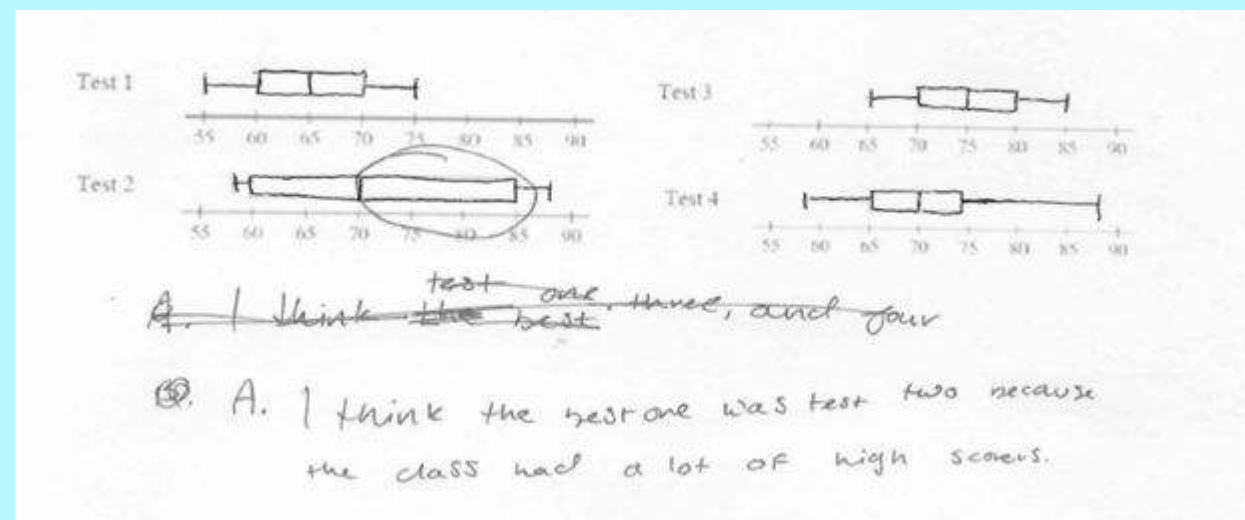 Test 1
55 60 65 70 75 80 85 90
Test 2
55 60 65 70 75 80 85 90
Test 3
55 60 65 70 75 80 85 90
Test 4
55 60 65 70 75 80 85 90
test one
A. I think the best three, and four
A. I think the best one was test two because
the class had a lot of high scorers.